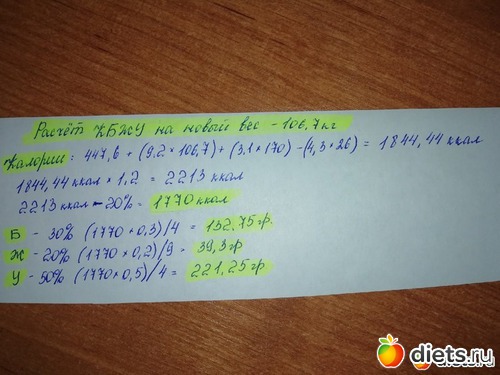 Расчёт КБЖУ на новый вес - 106,7 кг
Калории: 447,6 + (9.2 × 106,7) + (3,1 × 170) - (4,3 × 26) = 1844,44 ккал
1844,44 ккал × 1,2 = 2213 ккал
2213 ккал - 20% = 1770 ккал
Б - 30% (1770 × 0,3)/4 = 132.75 гр.
Ж - 20% (1770 × 0,2)/9 = 39,3 гр
У - 50% (1770 × 0,5)/4 = 221,25 гр
diets.ru